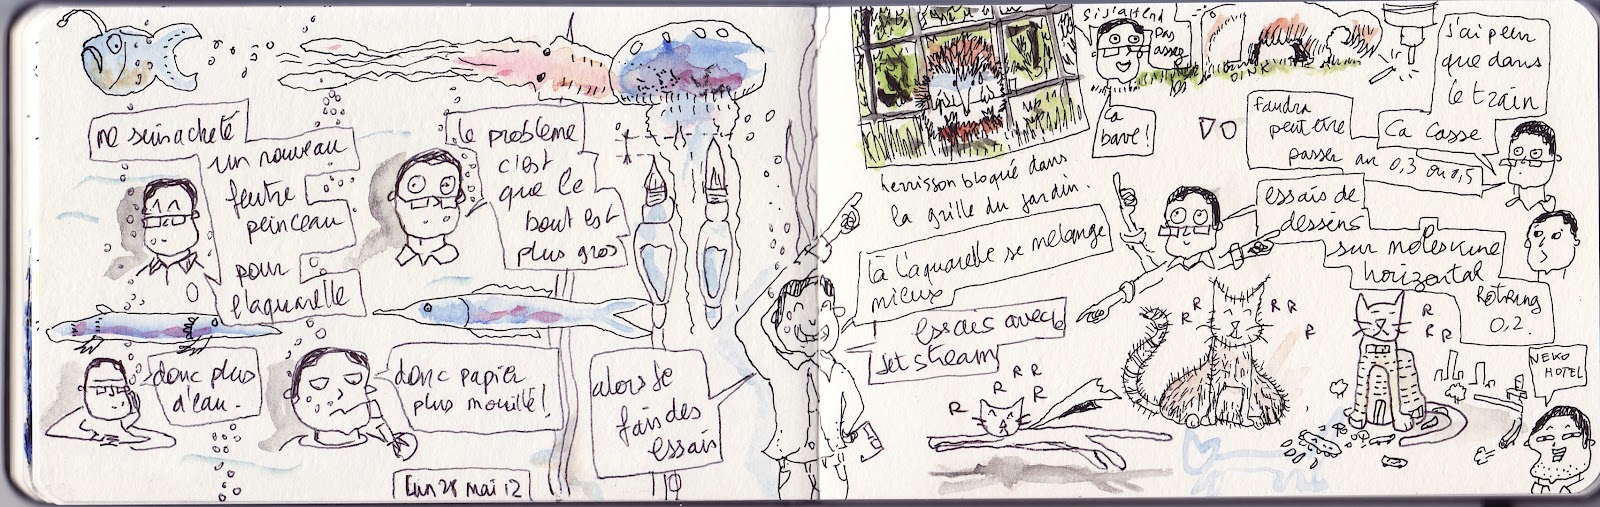 me suis acheté
un nouveau
feutre
peinceau
pour
l'aquarelle
le problème
c'est
que le
bout est
plus gros
donc plus
d'eau.
donc papier
plus mouillé!
alors je
fais des
essais
Lun 28 mai 12
pas
assez
Ca
bave!
OINK
herrisson bloqué dans
la grille du jardin.
là l'aquarelle se mélange
mieux
essais avec
jet stream
J'ai peur
que dans
le train
Ca casse
faudra
peut etre
passer au 0,3 ou 0,5
essais de
dessins
sur moleskine
horizontal
Rotring
0,2.
R R R
R R R
R R R
R R R R
NEKO
HOTEL